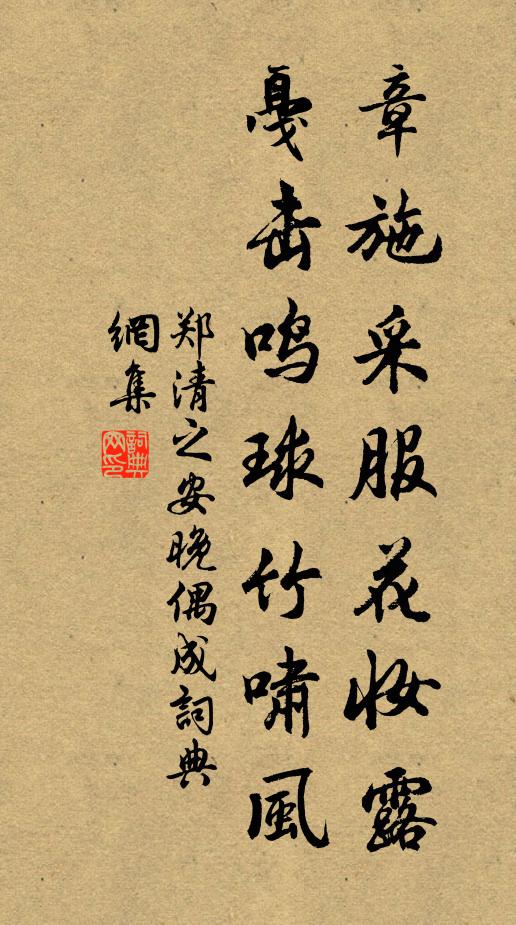 章施采服花妆露
戛击鸣球竹啸風
郑清之安晚偶成詞典
網集
詞典网印